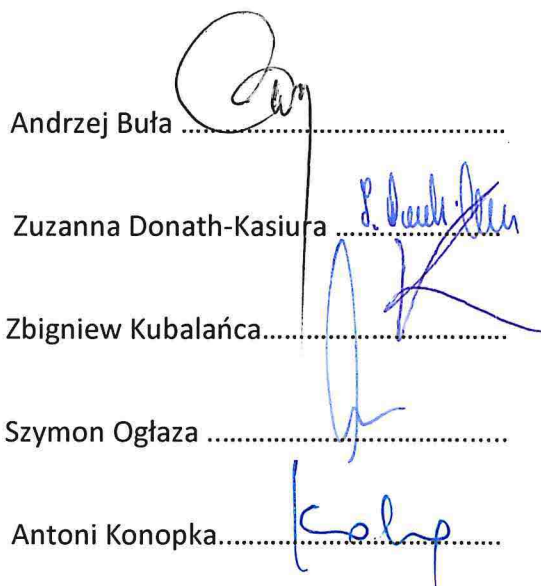 Andrzej Buła ........................................
Zuzanna Donath-Kasiura ....................
Zbigniew Kubalańca..............................
Szymon Ogłaza .....................................
Antoni Konopka...................................